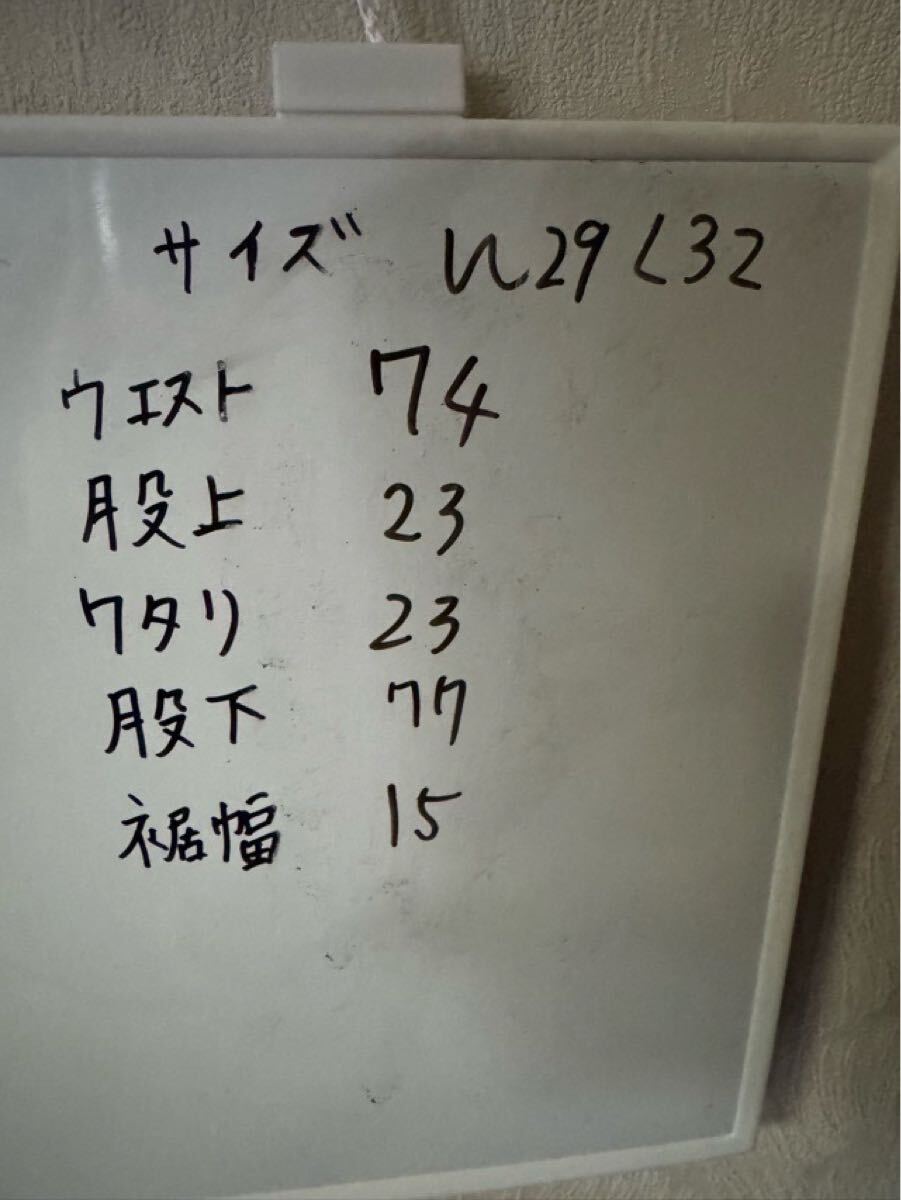 サイズ W29 L32
ウエスト 74
股上 23
ワタリ 23
股下 77
裾幅 15